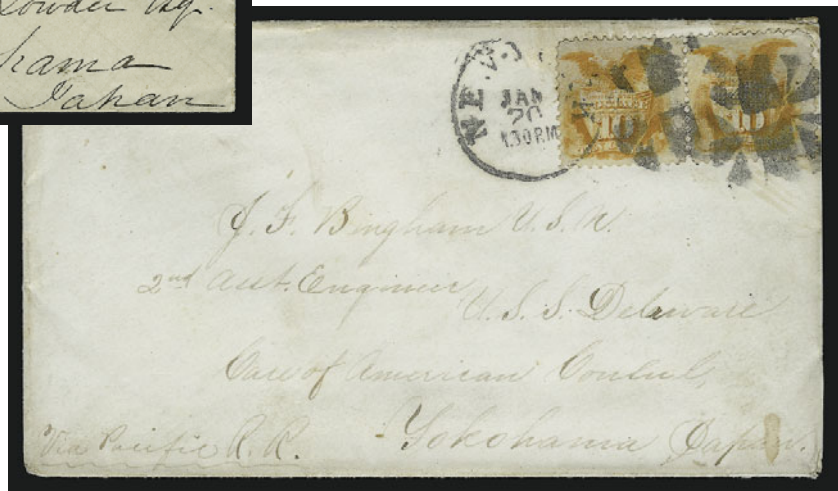 Esq.
Japan
NE
JAN
20
1.30 P.M
J. F. Bingham U.S.N.
2nd Asst. Engineer
U. S. S. Delaware
Care of American Consul,
Yokohama Japan.
Via Pacific R. R.